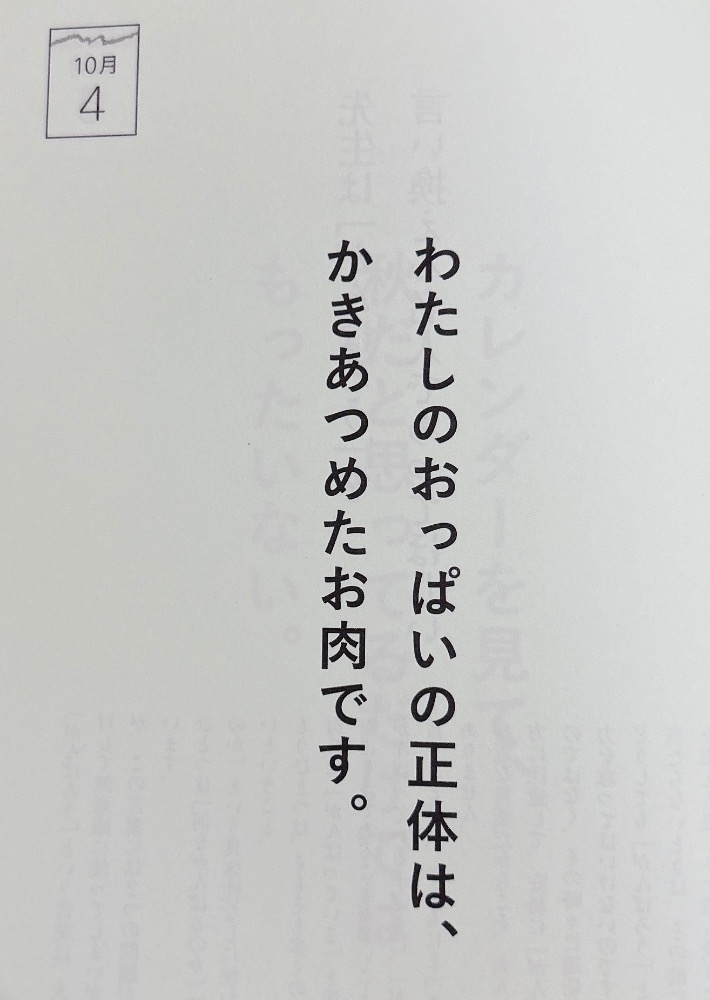 10月
4
わたしのおっぱいの正体は、
かきあつめたお肉です。